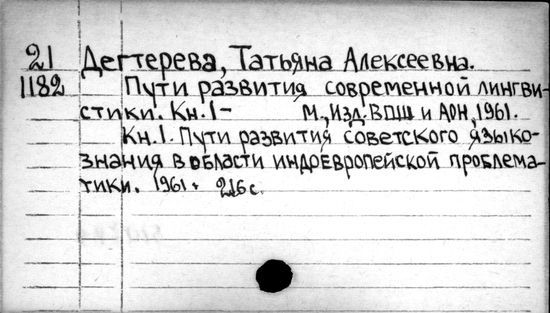 21 Дегтерева, Татьяна Алексеевна.
1182 Пути развития современной лингви-
стики. Кн. 1- М., Изд. ВПШ и АОН, 1961.
Кн. 1. Пути развития советского языко-
знания в области индоевропейской проблема-
тики. 1961. 216 с.